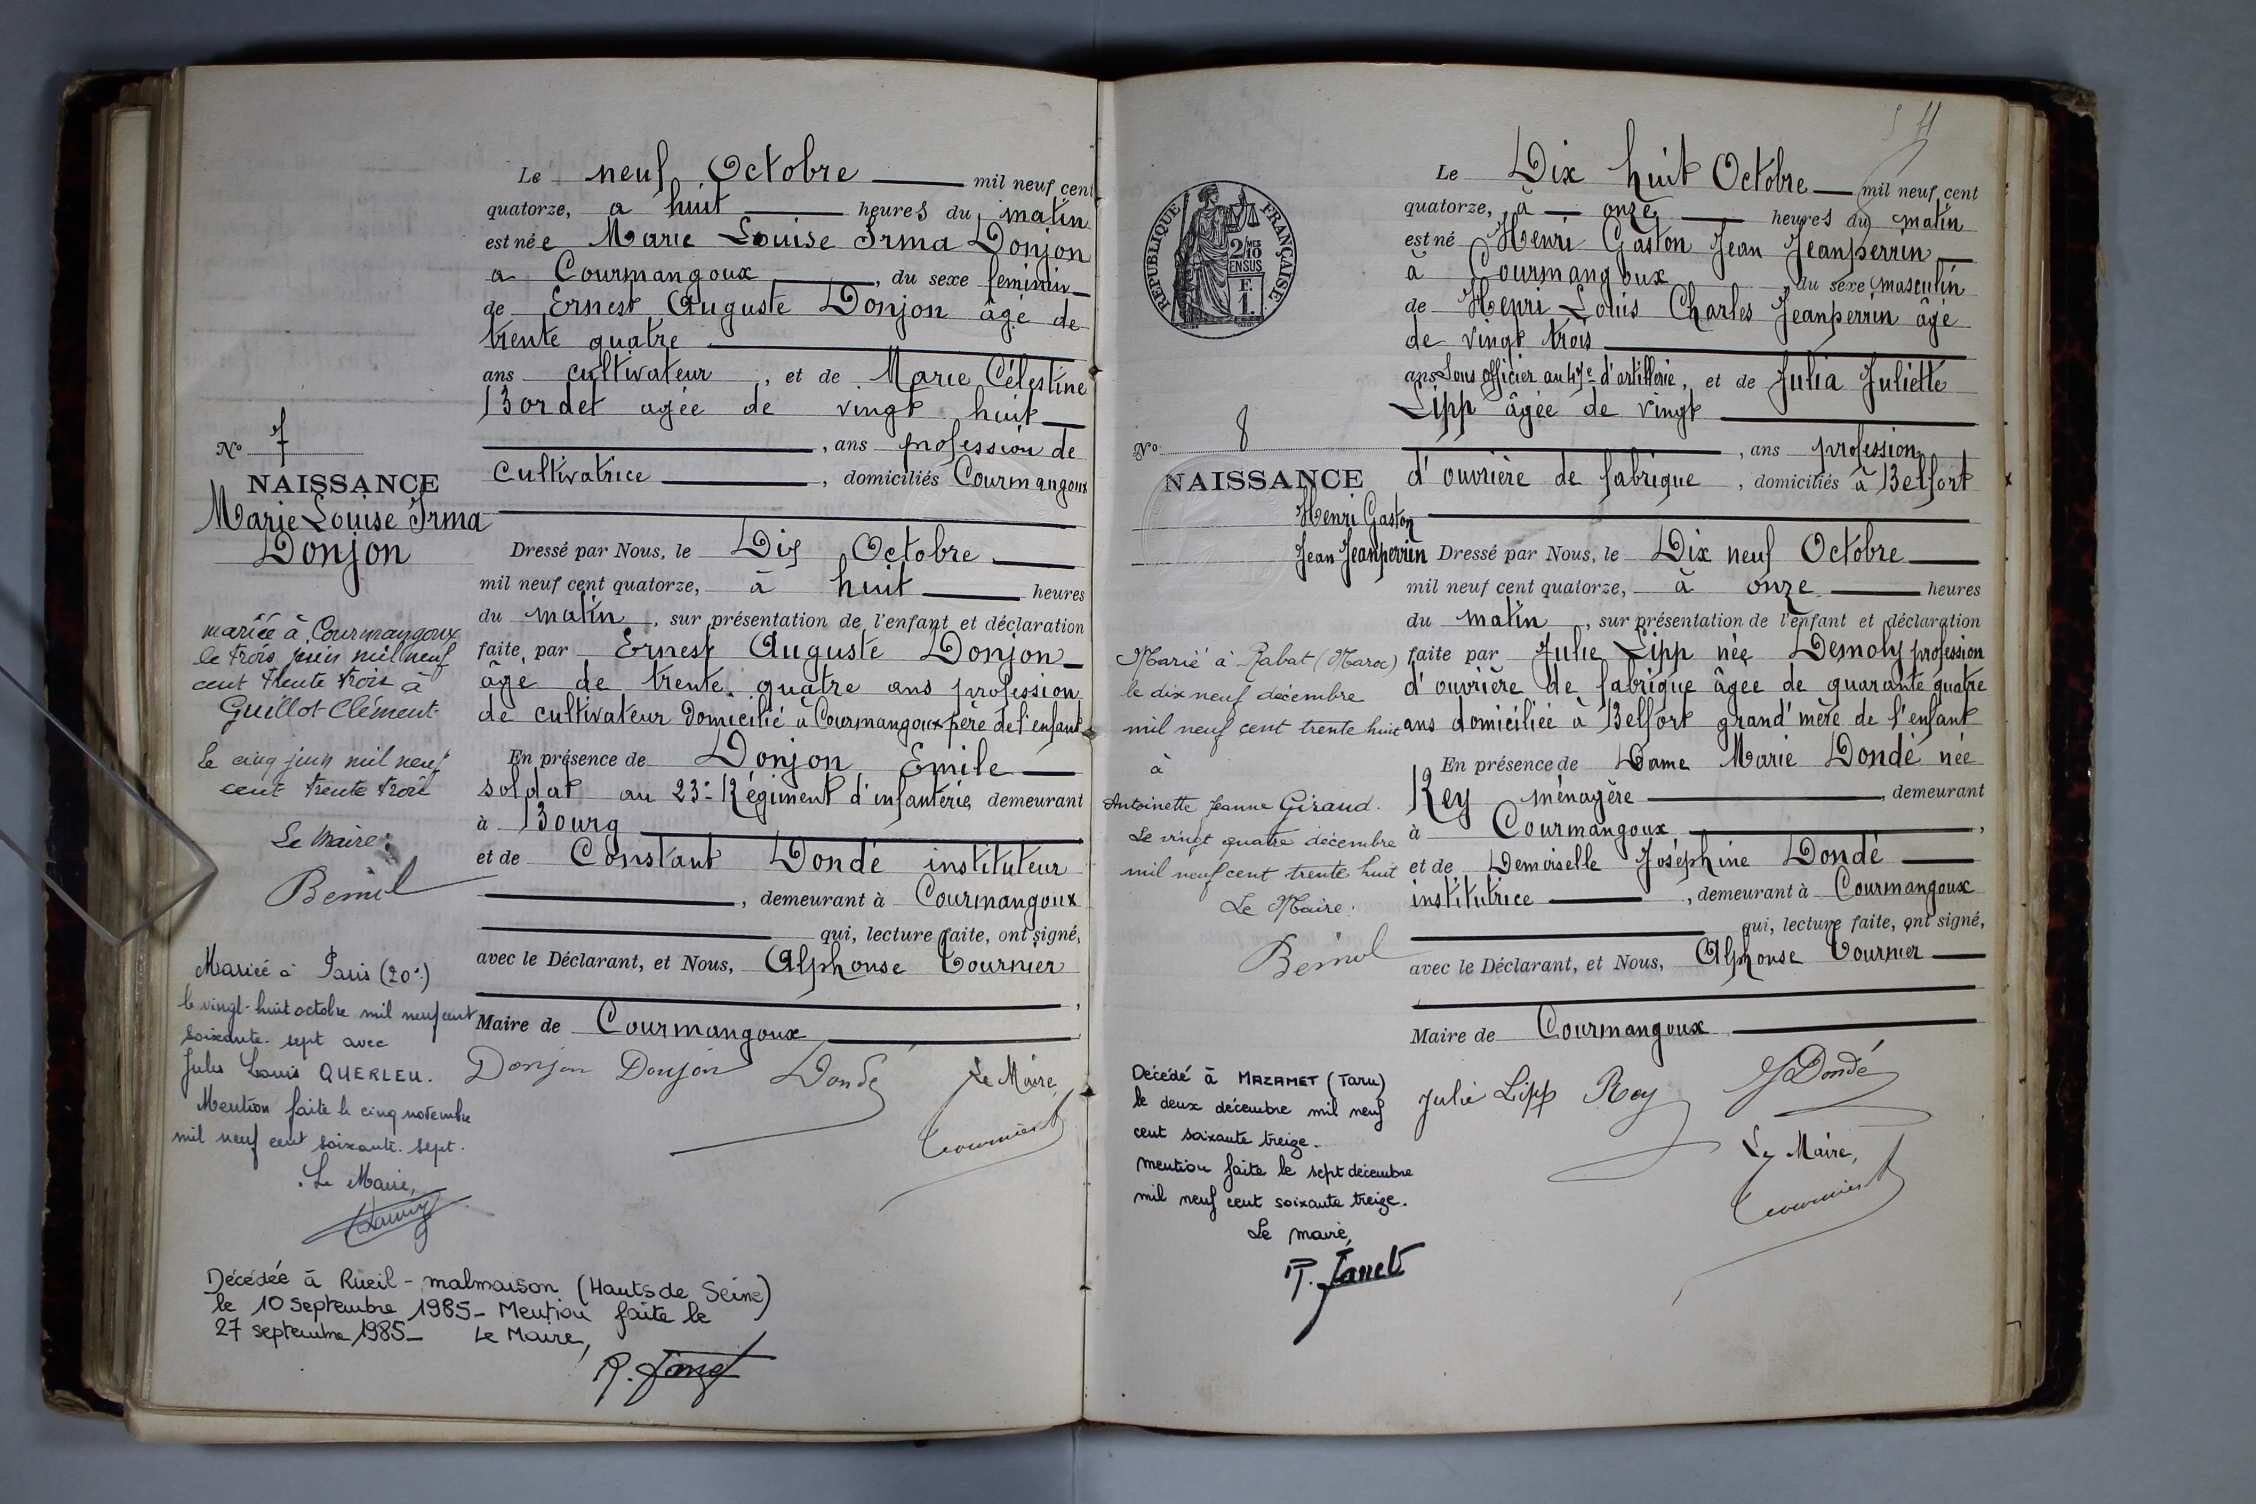 Le neuf Octobre mil neuf cent
quatorze, a huit heures du matin
est née Marie Louise Irma Donjon
a Courmangoux, du sexe feminin
de Ernest Auguste Donjon âgé de
trente quatre
ans cultivateur, et de Marie Célestine
Bordet agée de vingt huit
, ans profession de
cultivatrice, domiciliés Courmangoux
No 7
NAISSANCE
Marie Louise Irma
Donjon
Dressé par Nous, le Dix Octobre
mil neuf cent quatorze, à huit heures
du matin, sur présentation de l'enfant et déclaration
faite par Ernest Auguste Donjon
âgé de trente quatre ans profession
de cultivateur Domicilié à Courmangoux père de l'enfant
En présence de Donjon Emile
soldat au 23e Régiment d'infanterie demeurant
à Bourg
et de Constant Dondé instituteur
, demeurant à Courmangoux
qui, lecture faite, ont signé,
avec le Déclarant, et Nous, Alphonse Tournier
,
Maire de Courmangoux
Donjon Donjon Dondé Le Maire,
Tournier
mariée à Courmangoux
le trois juin mil neuf
cent trente trois à
Guillot Clément
Le cinq juin mil neuf
cent trente trois
Le Maire:
Mariée à Paris (20e)
le vingt-huit octobre mil neuf cent
soixante-sept avec
Jules Louis QUERLEU.
Mention faite le cinq novembre
mil neuf cent soixante-sept.
Le Maire,
Décédée à Rueil-malmaison (Hauts de Seine)
le 10 Septembre 1985- Mention faite le
27 septembre 1985- Le Maire,
Le Dix huit Octobre mil neuf cent
quatorze, à onze heures du matin
est né Henri Gaston Jean Jeanperrin
à Courmangoux, du sexe masculin
de Henri Louis Charles Jeanperrin âgé
de vingt trois
ans Sous officier au 47e d'artillerie, et de Julia Juliette
Lipp âgée de vingt
, ans profession
d'ouvrière de fabrique, domiciliés à Belfort
RÉPUBLIQUE FRANÇAISE
2/10 MES
EN SUS
F.
1.
No 8
NAISSANCE
Henri Gaston
Jean Jeanperrin
Dressé par Nous, le Dix neuf Octobre
mil neuf cent quatorze, à onze heures
du matin, sur présentation de l'enfant et déclaration
faite par Julie Lipp née Demoly profession
d'ouvrière de fabrique âgée de quarante quatre
ans domiciliée à Belfort grand'mère de l'enfant
En présence de Dame Marie Dondé née
Rey ménagère, demeurant
à Courmangoux,
et de Demoiselle Joséphine Dondé
institutrice, demeurant à Courmangoux
qui, lecture faite, ont signé,
avec le Déclarant, et Nous, Alphonse Tournier
Maire de Courmangoux
Julie Lipp Rey J Dondé
Le Maire,
Tournier
Marié à Rabat (Maroc)
le dix neuf décembre
mil neuf cent trente huit
à
Antoinette Jeanne Giraud.
Le vingt quatre décembre
mil neuf cent trente huit
Le Maire.
Décédé à MAZAMET (Tarn)
le deux décembre mil neuf
cent soixante treize.
mention faite le sept décembre
mil neuf cent soixante treize.
Le maire,